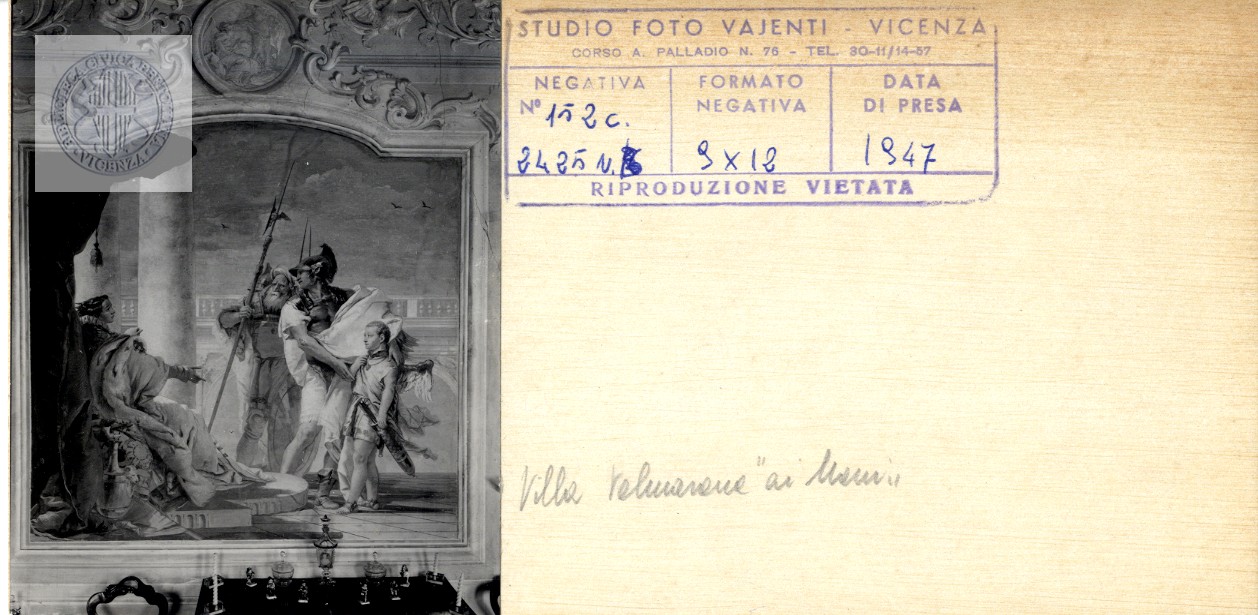 BIBLIOTECA CIVICA BERTOLIANA
· VICENZA ·
STUDIO FOTO VAJENTI - VICENZA
CORSO A. PALLADIO N. 76 - TEL. 30-11/14-57
NEGATIVA FORMATO DATA
Nº 152 c. NEGATIVA DI PRESA
2425 N. 9 x 12 1947
RIPRODUZIONE VIETATA
Villa Valmarana "ai Nani"